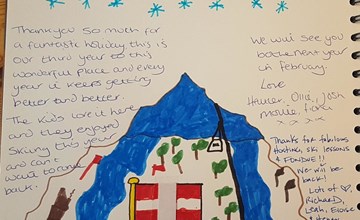 Thankyou so much for
a fantastic holiday this is
our third year to this
wonderful place and every
year it keeps getting
better and better.
The kids love it here
and they enjoyed
skiing this year
and can't
want to come
back.
We will see you
back next year
in February.
Love
Olli, Josh
Thanks for fabulous
hosting, ski lessons
& FONDUE!!
We will be
back!
Lots of ♡
Richard,
Leah,